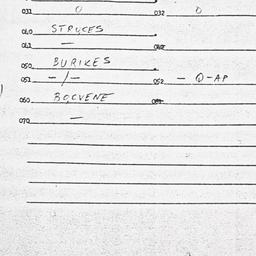 031 0 032 0
040 STRUCES
041 — 042
050 BURIKES
051 - / - 052 - Q-AP
060 BOCVENE
070 —